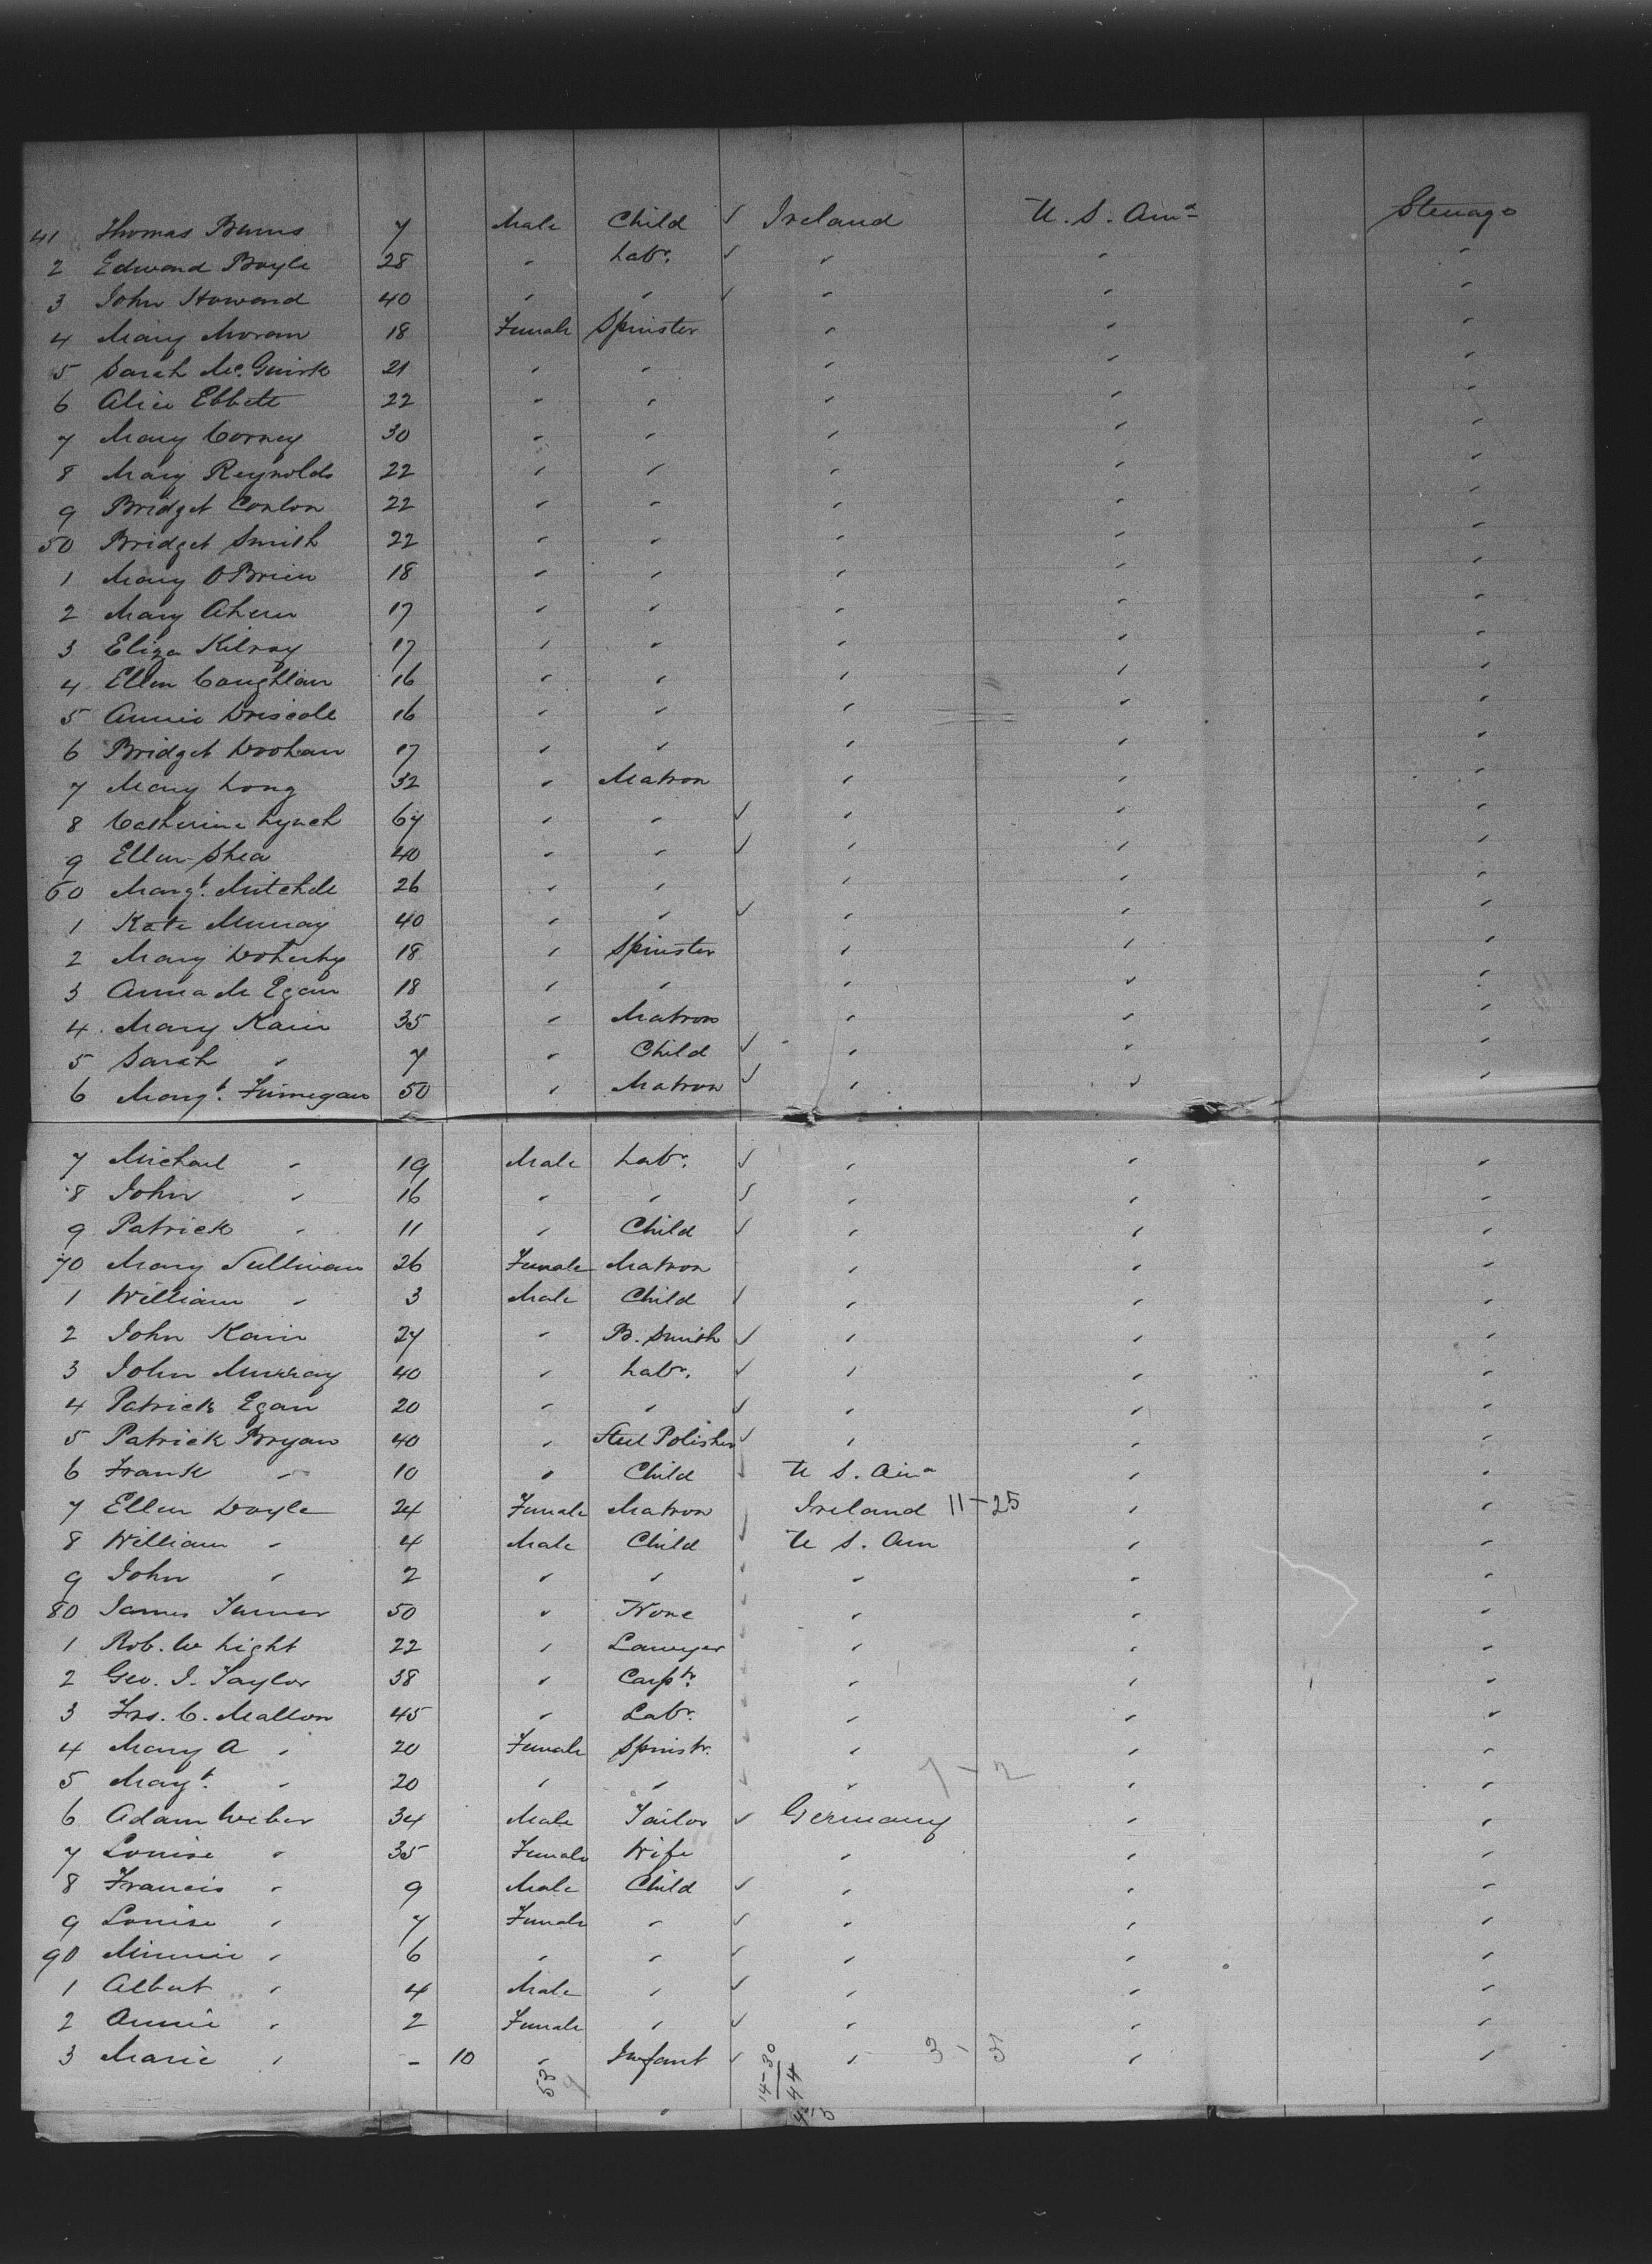 41 Thomas Burns 7 Male Child ✓ Ireland U. S. Amª Steerage
2 Edward Boyle 28 " Labr. ✓ " " "
3 John Howard 40 " " ✓ " " "
4 Mary Moran 18 Female Spinster " " "
5 Sarah Mc. Guirk 21 " " " " "
6 Alice Ebbett 22 " " " " "
7 Mary Corney 30 " " " " "
8 Mary Reynolds 22 " " " " "
9 Bridget Conlon 22 " " " " "
50 Bridget Smith 22 " " " " "
1 Mary O'Brien 18 " " " " "
2 Mary Ahern 17 " " " " "
3 Eliza Kilroy 17 " " " " "
4 Ellen Coughlan 16 " " " " "
5 Annie Driscoll 16 " " " " "
6 Bridget Doohan 17 " " " " "
7 Mary Long 32 " Matron " " "
8 Catherine Lynch 67 " " ✓ " " "
9 Ellen Shea 40 " " ✓ " " "
60 Margt. Mitchell 26 " " " " "
1 Kate Murray 40 " " ✓ " " "
2 Mary Doherty 18 " Spinster " " "
3 Anna M Egan 18 " " " " "
4 Mary Kain 35 " Matron " " "
5 Sarah " 7 " Child ✓ " " "
6 Margt. Finnegan 50 " Matron ✓ " " "
7 Michael " 19 Male Labr. ✓ " " "
8 John " 16 " " ✓ " " "
9 Patrick " 11 " Child ✓ " " "
70 Mary Sullivan 26 Female Matron " " "
1 William " 3 Male Child ✓ " " "
2 John Kain 27 " B. Smith ✓ " " "
3 John Murray 40 " Labr. ✓ " " "
4 Patrick Egan 20 " " ✓ " " "
5 Patrick Bryan 40 " Steel Polisher ✓ " " "
6 Frank " 10 " Child ✓ U S. Amª " "
7 Ellen Doyle 24 Female Matron Ireland 11-25 " "
8 William " 4 Male Child ✓ U S. Am " "
9 John " 2 " " " " "
80 James Turner 50 " None " " "
1 Rob. W Light 22 " Lawyer " " "
2 Geo. I. Taylor 38 " Carptr. " " "
3 Frs. C. Mallon 45 " Labr. " " "
4 Mary A " 20 Female Spinstr. " " "
5 Margt. " 20 " " ✓ " 7-2 " "
6 Adam Weber 34 Male Tailor ✓ Germany " "
7 Louise " 35 Female Wife " " "
8 Francis " 9 Male Child ✓ " " "
9 Louise " 7 Female " ✓ " " "
90 Minnie " 6 " " ✓ " " "
1 Albert " 4 Male " ✓ " " "
2 Annie " 2 Female " ✓ " " "
3 Marie " - 10 " Infant ✓ " 3 - 31 " "
53 9 14-30
444